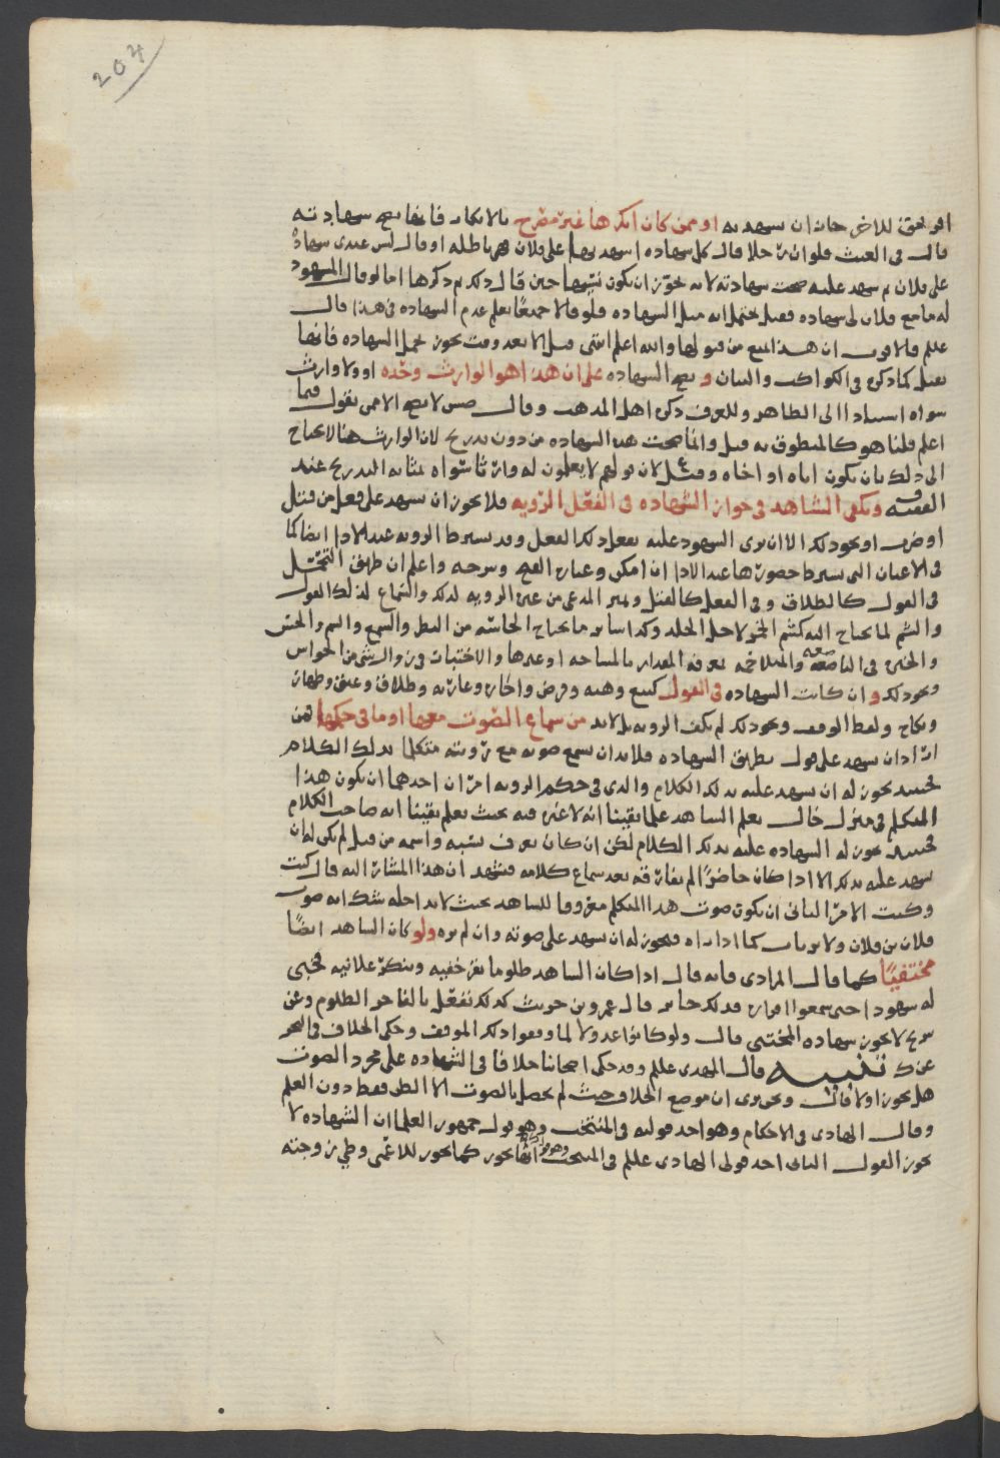 204
اقر بحق للاخر جاز ان يسهد به او ممن كان انكرها غير مصرح بالانكار فانها يصح سهادته
قال في الغيث فلو ان رجلا قال كل سهاده اسهد بها على فلان فهي باطله او قال ليس عندي سهاده
على فلان ثم سهد عليه صحت سهادته لانه يجوز ان يكون نسيها حين قال ذلك ثم ذكرها اما لو قال المسهود
له ما مع فلان لي سهاده فقيل يحتمل انه قبل السهاده فلو قالا جميعا نعلم عدم السهاده في هذا قال
علم فالاقرب ان هذا المنع من قبولها والله اعلم انتهى قيل الا بعد وقت يجوز تحمل السهاده فانها
تقبل كما ذكره في الكواكب والبيان و يصح السهاده على ان هذا هو الوارث وحده او ولا وارث
سواه استنادا الى الظاهر وللعرف ذكره اهل المذهب وقال ص س لا يصح الا ممن يقول فيما
اعلم قلنا هو كالمنطوق به قيل وانما صحت هذه السهاده من دون تدريج لان الوارث هنا لا يحتاج
الى ذلك بان يكون اباه او اخاه وقيل لان قولهم لا يعلمون له وارثا سواه بمثابه التدريج عند
الفقيه ف ويكفي الشاهد في جواز الشهاده في الفعل الرويه فلا يجوز ان يسهد على فعل من قتل
او ضرب او نحو ذلك الا ان يرى المسهود عليه يفعل ذلك الفعل وقد يسترط الرويه عند الادا ايضا كما
في الاعيان التي يسترط حضورها عند الادا ان امكن وعباره الفتح وسرحه واعلم ان طريق التحمل
في القول كالطلاق وفي الفعل كالقتل وتميز المدعى من غيره الرويه لذلك والسماع لذلك القول
والشم لما يحتاج اليه كشم الخمر لاجل الحد وكذا سائر ما يحتاج الحاسه من النظر والسمع والشم والحس
والخبره في الباضعه والمتلاحمه معرفه المقدار بالمساحه او غيرها والاختبار في والرشد من الحواس
ونحو ذلك و ان كانت السهاده في القول كبيع وهبه وقرض واجاره وعاريه وطلاق وعتق وظهار
ونكاح ولفظ الوقف ونحو ذلك لم يكف الرويه بل لا بد من سماع الصوت معها او ما في حكمها فمن
اراد ان يسهد على قول بطريق السهاده فلا بد ان يسمع صوته مع رويته متكلما بذلك الكلام
فحينئذ يجوز له ان يسهد عليه بذلك الكلام والذي في حكم الرويه امران احدهما ان يكون هذا
المتكلم في منزل خال يعلم الشاهد علما يقينا انه لا غيره فيه بحيث يعلم يقينا انه صاحب الكلام
فحينئذ يجوز له السهاده عليه بذلك الكلام لكن ان كان يعرف نسبه واسمه من قبل لم يكن له ان
يسهد عليه بذلك الا اذا كان حاضرا لم يفارقه بعد سماع كلامه فيشهد ان هذا المشار اليه قال كيت
وكيت الامر الثاني ان يكون صوت هذا المتكلم معروفا للساهد بحيث لا يداخله شك انه صوت
فلان بن فلان ولا يرتاب كما اذا رآه فيجوز له ان يسهد على صوته وان لم يره ولو كان الساهد ايضا
مختفيا كما قال المرادي فانه قال اذا كان الساهد مظلوما يقر خفيه وينكر علانيه فخبى
له سهودا حتى سمعوا اقراره فذلك جائز قال عمرو بن حريث كذلك نفعل بالفاجر الظلوم وعن
سريح لا يجوز سهاده المختبي قال ولو كانوا عدولا لما وقعوا ذلك الموقف وحكى الخلاف في البحر
عن ك تنبيه قال المهدي علم وقد حكى اصحابنا خلافا في الشهاده على مجرد الصوت
هل يجوز اولا قال ونحن نرى ان موضع الخلاف حيث لم يحصل بالصوت الا الظن فقط دون العلم
وقال الهادي في الاحكام وهو احد قوليه في المنتخب وهو قول جمهور العلما ان الشهاده لا
يجوز القول الثاني احد قولي الهادي علم في المنتخب انها يجوز كما يجوز للاعمى وطي زوجته